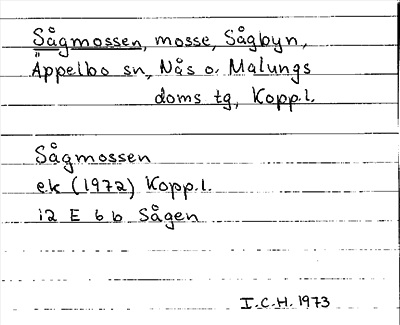 Sågmossen, mosse, Sågbyn,
Äppelbo sn, Nås o. Malungs
doms tg, Kopp.l.
Sågmossen
ek (1972) Kopp.l.
12 E 6 b Sågen
I.C.H. 1973